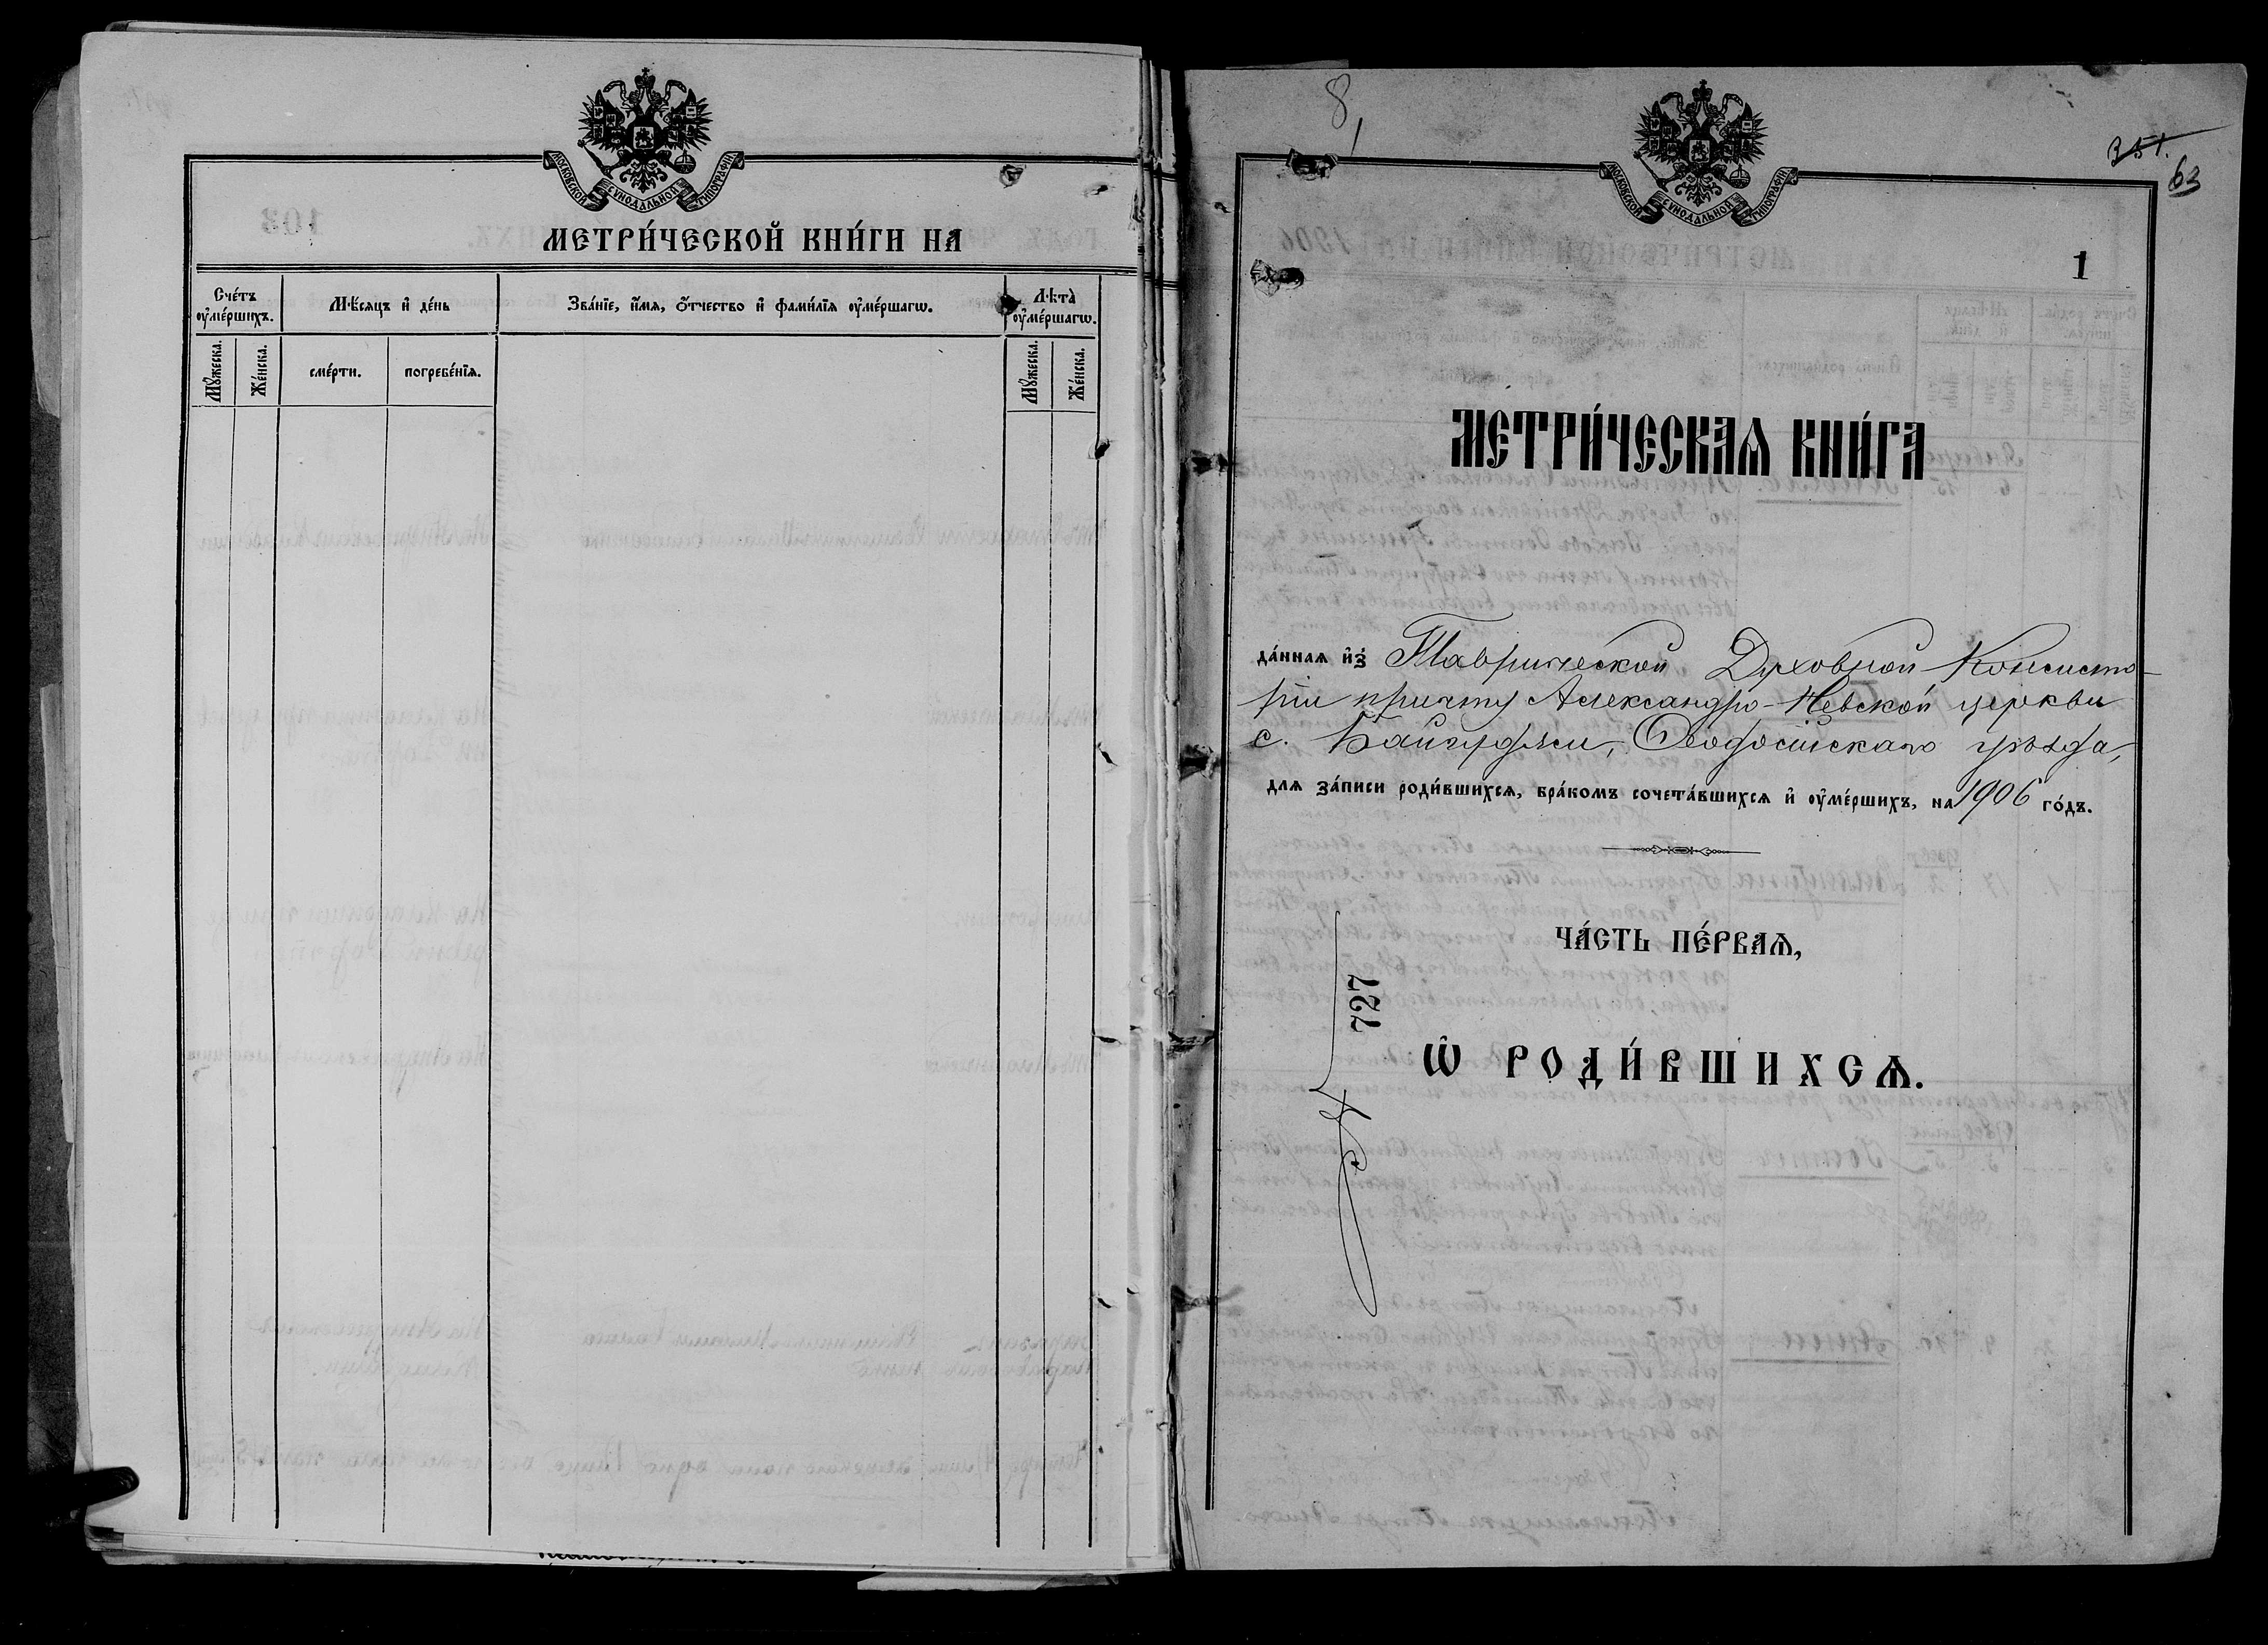 МОСКОВСКОЙ СѴНОДАЛЬНОЙ ТИПОГРАФІИ
МЕТРИ́ЧЕСКОЙ КНИ́ГИ НА
Сче́тъ ᲂу҆ме́ршихъ.
Мѣ́сяцъ и҆ де́нь
Зва́нїе, и҆́мѧ, ѻ҆́тчество и҆ фами́лїѧ ᲂу҆ме́ршагѡ.
Лѣта̀ ᲂу҆ме́ршагѡ.
Мꙋ́жеска.
Же́нска.
сме́рти.
погребе́нїѧ.
Мꙋ́жеска.
Же́нска.
8,
351.
63
МОСКОВСКОЙ СѴНОДАЛЬНОЙ ТИПОГРАФІИ
1
МЕТРИ́ЧЕСКАѦ КНИ́ГА
да́ннаѧ и҆з̾ Таврической Духовной Консисто-
ріи причту Александро-Невской церкви
с. Байгуджи, Ѳеодосійскаго уѣзда,
длѧ за́писи роди́вшихсѧ, бра́комъ сочета́вшихсѧ и҆ ᲂу҆ме́ршихъ, на 1906 го́дъ.
ЧА́СТЬ ПЕ́РВАѦ,
727
Ѡ҆ РОДИ́ВШИХСѦ.